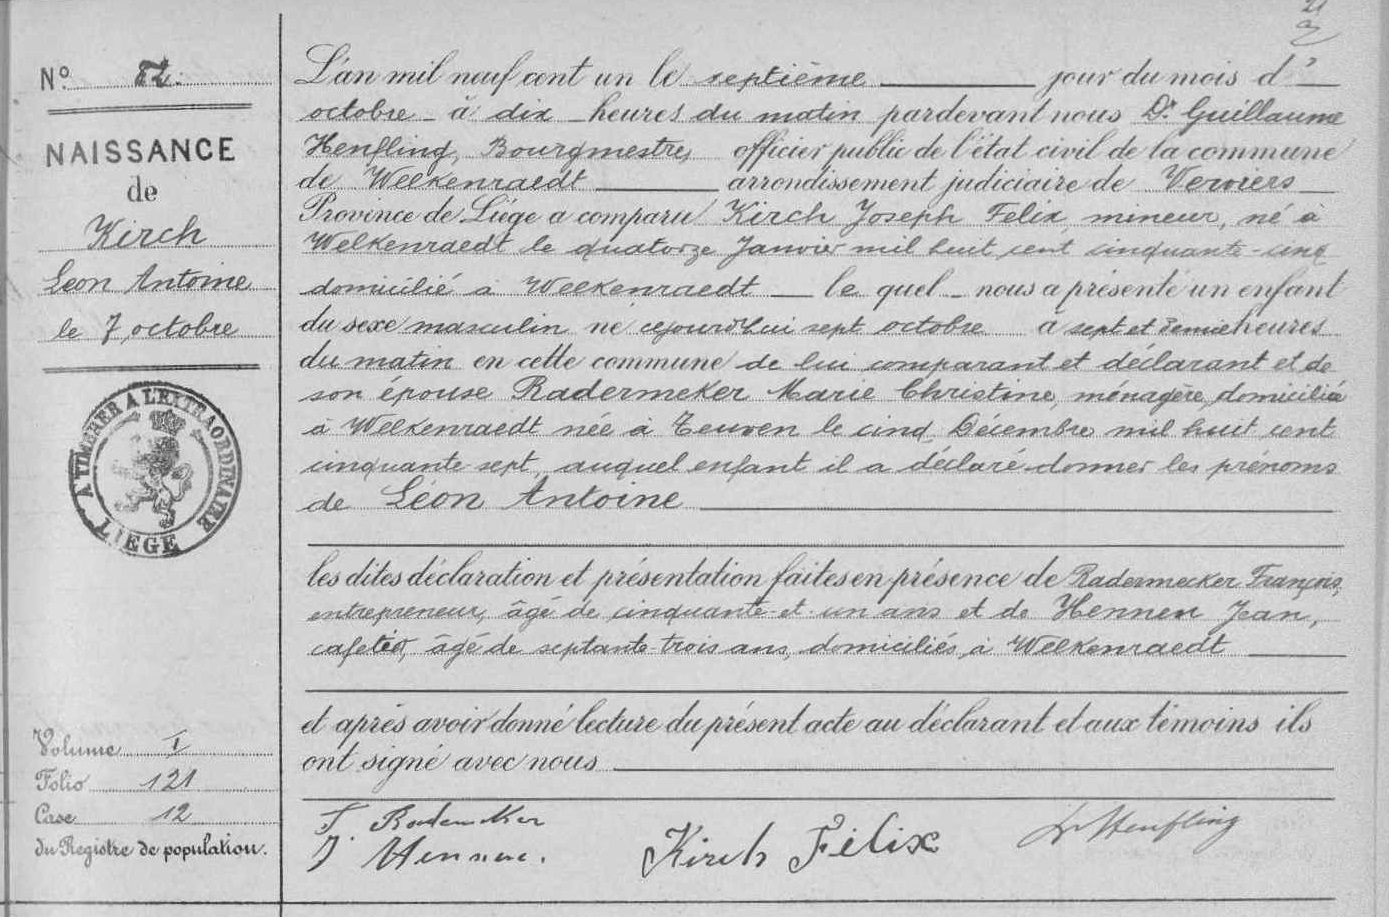 N.º 82.
NAISSANCE
de
Kirch
Léon Antoine
le 7 octobre
A TIMBRER A L'EXTRAORDINAIRE
LIEGE
Volume I
Folio 121
Case 12
du Registre de population.
L'an mil neuf cent un le septième jour du mois d'
octobre à dix heures du matin pardevant nous Dr. Guillaume
Henfling, Bourgmestre, officier public de l'état civil de la commune
de Welkenraedt arrondissement judiciaire de Verviers
Province de Liége a comparu Kirch Joseph Felix, mineur, né à
Welkenraedt le quatorze Janvier mil huit cent cinquante-cinq
domicilié à Welkenraedt le quel nous a présenté un enfant
du sexe masculin né cejourd'hui sept octobre à sept et demie heures
du matin en cette commune de lui comparant et déclarant et de
son épouse Radermeker Marie Christine, ménagère, domiciliée
à Welkenraedt née à Teuven le cinq Décembre mil huit cent
cinquante sept, auquel enfant il a déclaré donner les prénoms
de Léon Antoine
les dites déclaration et présentation faites en présence de Radermecker François,
entrepreneur, âgé de cinquante-et-un ans et de Hennen Jean,
cafetier, âgé de septante-trois ans, domiciliés à Welkenraedt
et après avoir donné lecture du présent acte au déclarant et aux témoins ils
ont signé avec nous
F. Radermeker
J. Hennen.
Kirch Félix
Dr Henfling